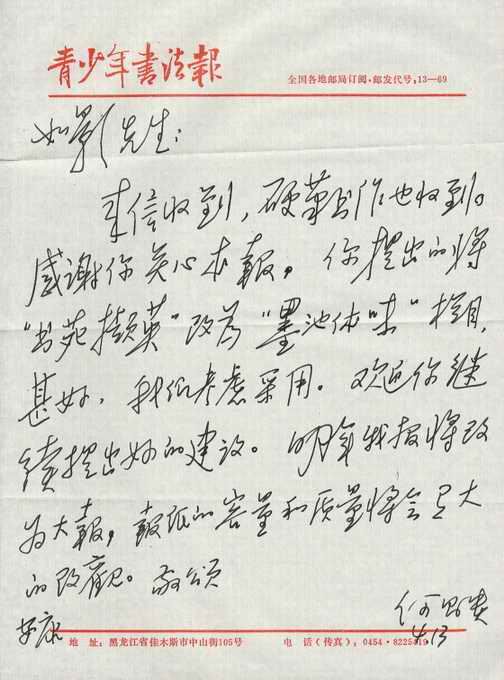 青少年書法報
全国各地邮局订阅·邮发代号,13—69
如影先生:
来信收到,硬笔书作也收到。
感谢你关心本報,你提出的将
“书苑撷英”改为“墨池体味”栏目,
甚好,我们考虑采用。欢迎你继
续提出好的建设。明年我报将改
为大報,報纸的容量和质量将会大
的改觀。敬颂
安康
何
4.13
地 址:黑龙江省佳木斯市中山街105号 电 话(传真),0454·